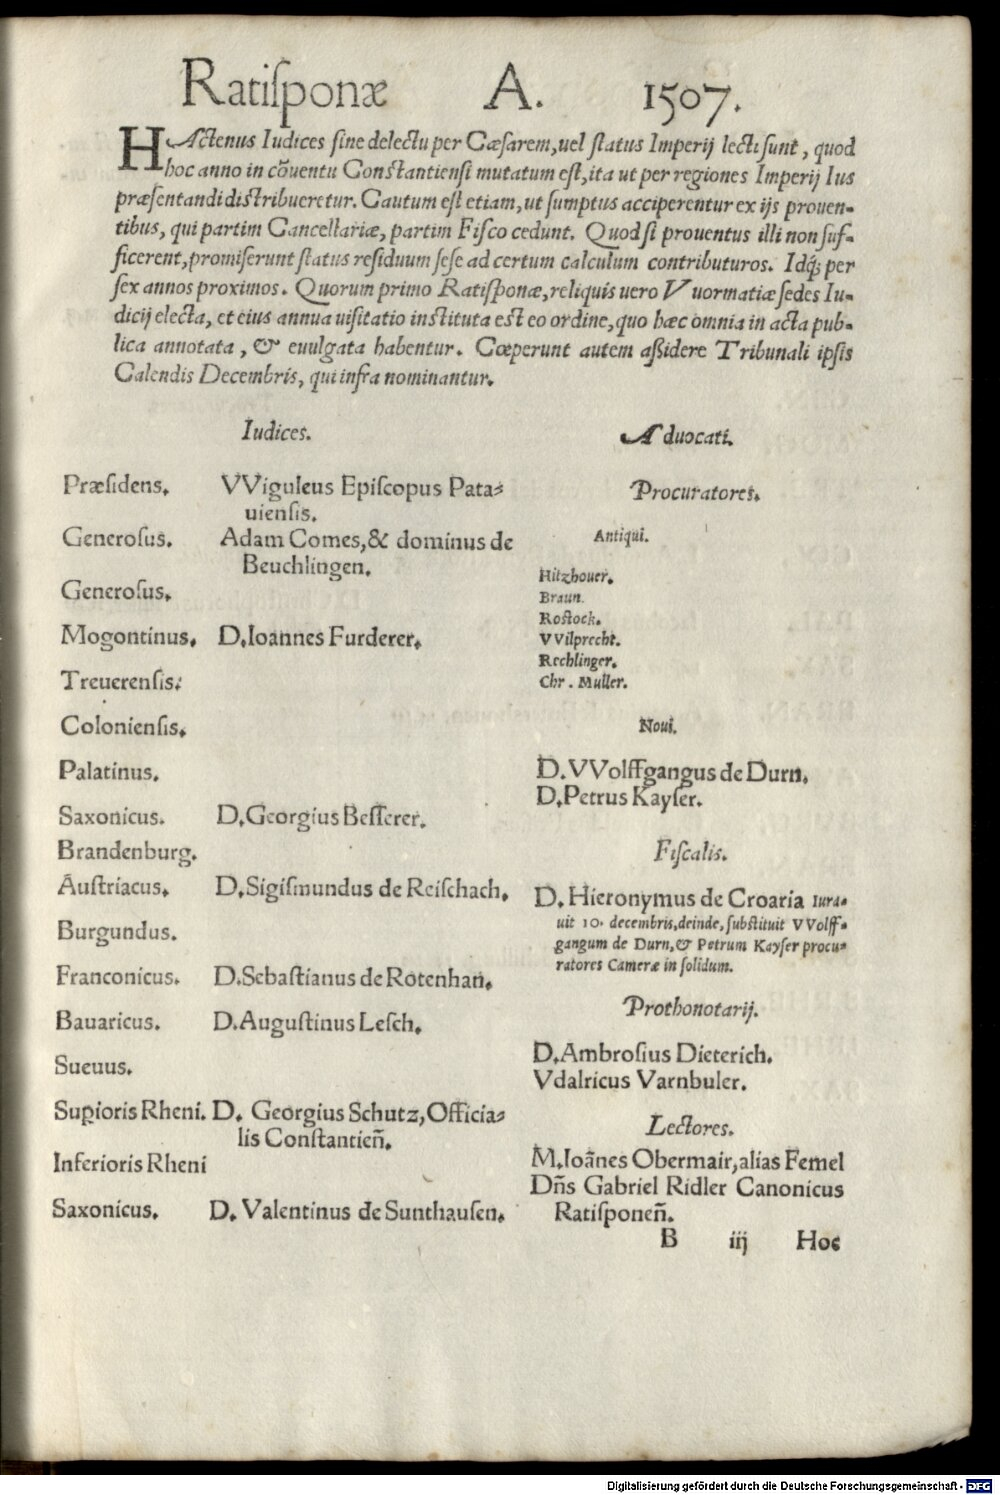 Ratiſponæ A. 1507.
HActenus Iudices ſine delectu per Cæſarem, uel ſtatus Imperij lecti ſunt, quod
hoc anno in cōuentu Conſtantienſi mutatum eſt, ita ut per regiones Imperij Ius
præſentandi diſtribueretur. Cautum eſt etiam, ut ſumptus acciperentur ex ijs prouen-
tibus, qui partim Cancellariæ, partim Fiſco cedunt. Quod ſi prouentus illi non ſuf-
ficerent, promiſerunt ſtatus reſiduum ſeſe ad certum calculum contributuros. Idq́; per
ſex annos proximos. Quorum primo Ratiſponæ, reliquis uero VVormatiæ ſedes Iu-
dicij electa, et eius annua uiſitatio inſtituta eſt eo ordine, quo hæc omnia in acta pub-
lica annotata, & euulgata habentur. Cœperunt autem aßidere Tribunali ipſis
Calendis Decembris, qui infra nominantur.
Iudices.
Præſidens. VViguleus Epiſcopus Pata-
uienſis.
Generoſus. Adam Comes, & dominus de
Beuchlingen.
Generoſus.
Mogontinus. D. Ioannes Furderer.
Treuerenſis.
Colonienſis.
Palatinus.
Saxonicus. D. Georgius Beſſerer.
Brandenburg.
Auſtriacus. D. Sigiſmundus de Reiſchach.
Burgundus.
Franconicus. D. Sebaſtianus de Rotenhan.
Bauaricus. D. Auguſtinus Leſch.
Sueuus.
Supioris Rheni. D. Georgius Schutz, Officia-
lis Conſtantien̄.
Inferioris Rheni
Saxonicus. D. Valentinus de Sunthauſen.
Aduocati.
Procuratores.
Antiqui.
Hitzhouer.
Braun.
Roſtock.
VVilprecht.
Rechlinger.
Chr. Muller.
Noui.
D. VVolffgangus de Durn.
D. Petrus Kayſer.
Fiſcalis.
D. Hieronymus de Croaria Iura-
uit 10. decembris, deinde, ſubſtituit VVolff-
gangum de Durn, & Petrum Kayſer procu-
ratores Cameræ in ſolidum.
Prothonotarij.
D. Ambroſius Dieterich.
Vdalricus Varnbuler.
Lectores.
M. Ioānes Obermair, alias Femel
Dn̄s Gabriel Ridler Canonicus
Ratiſponen̄.
B iij Hoc
Digitalisierung gefördert durch die Deutsche Forschungsgemeinschaft - DFG